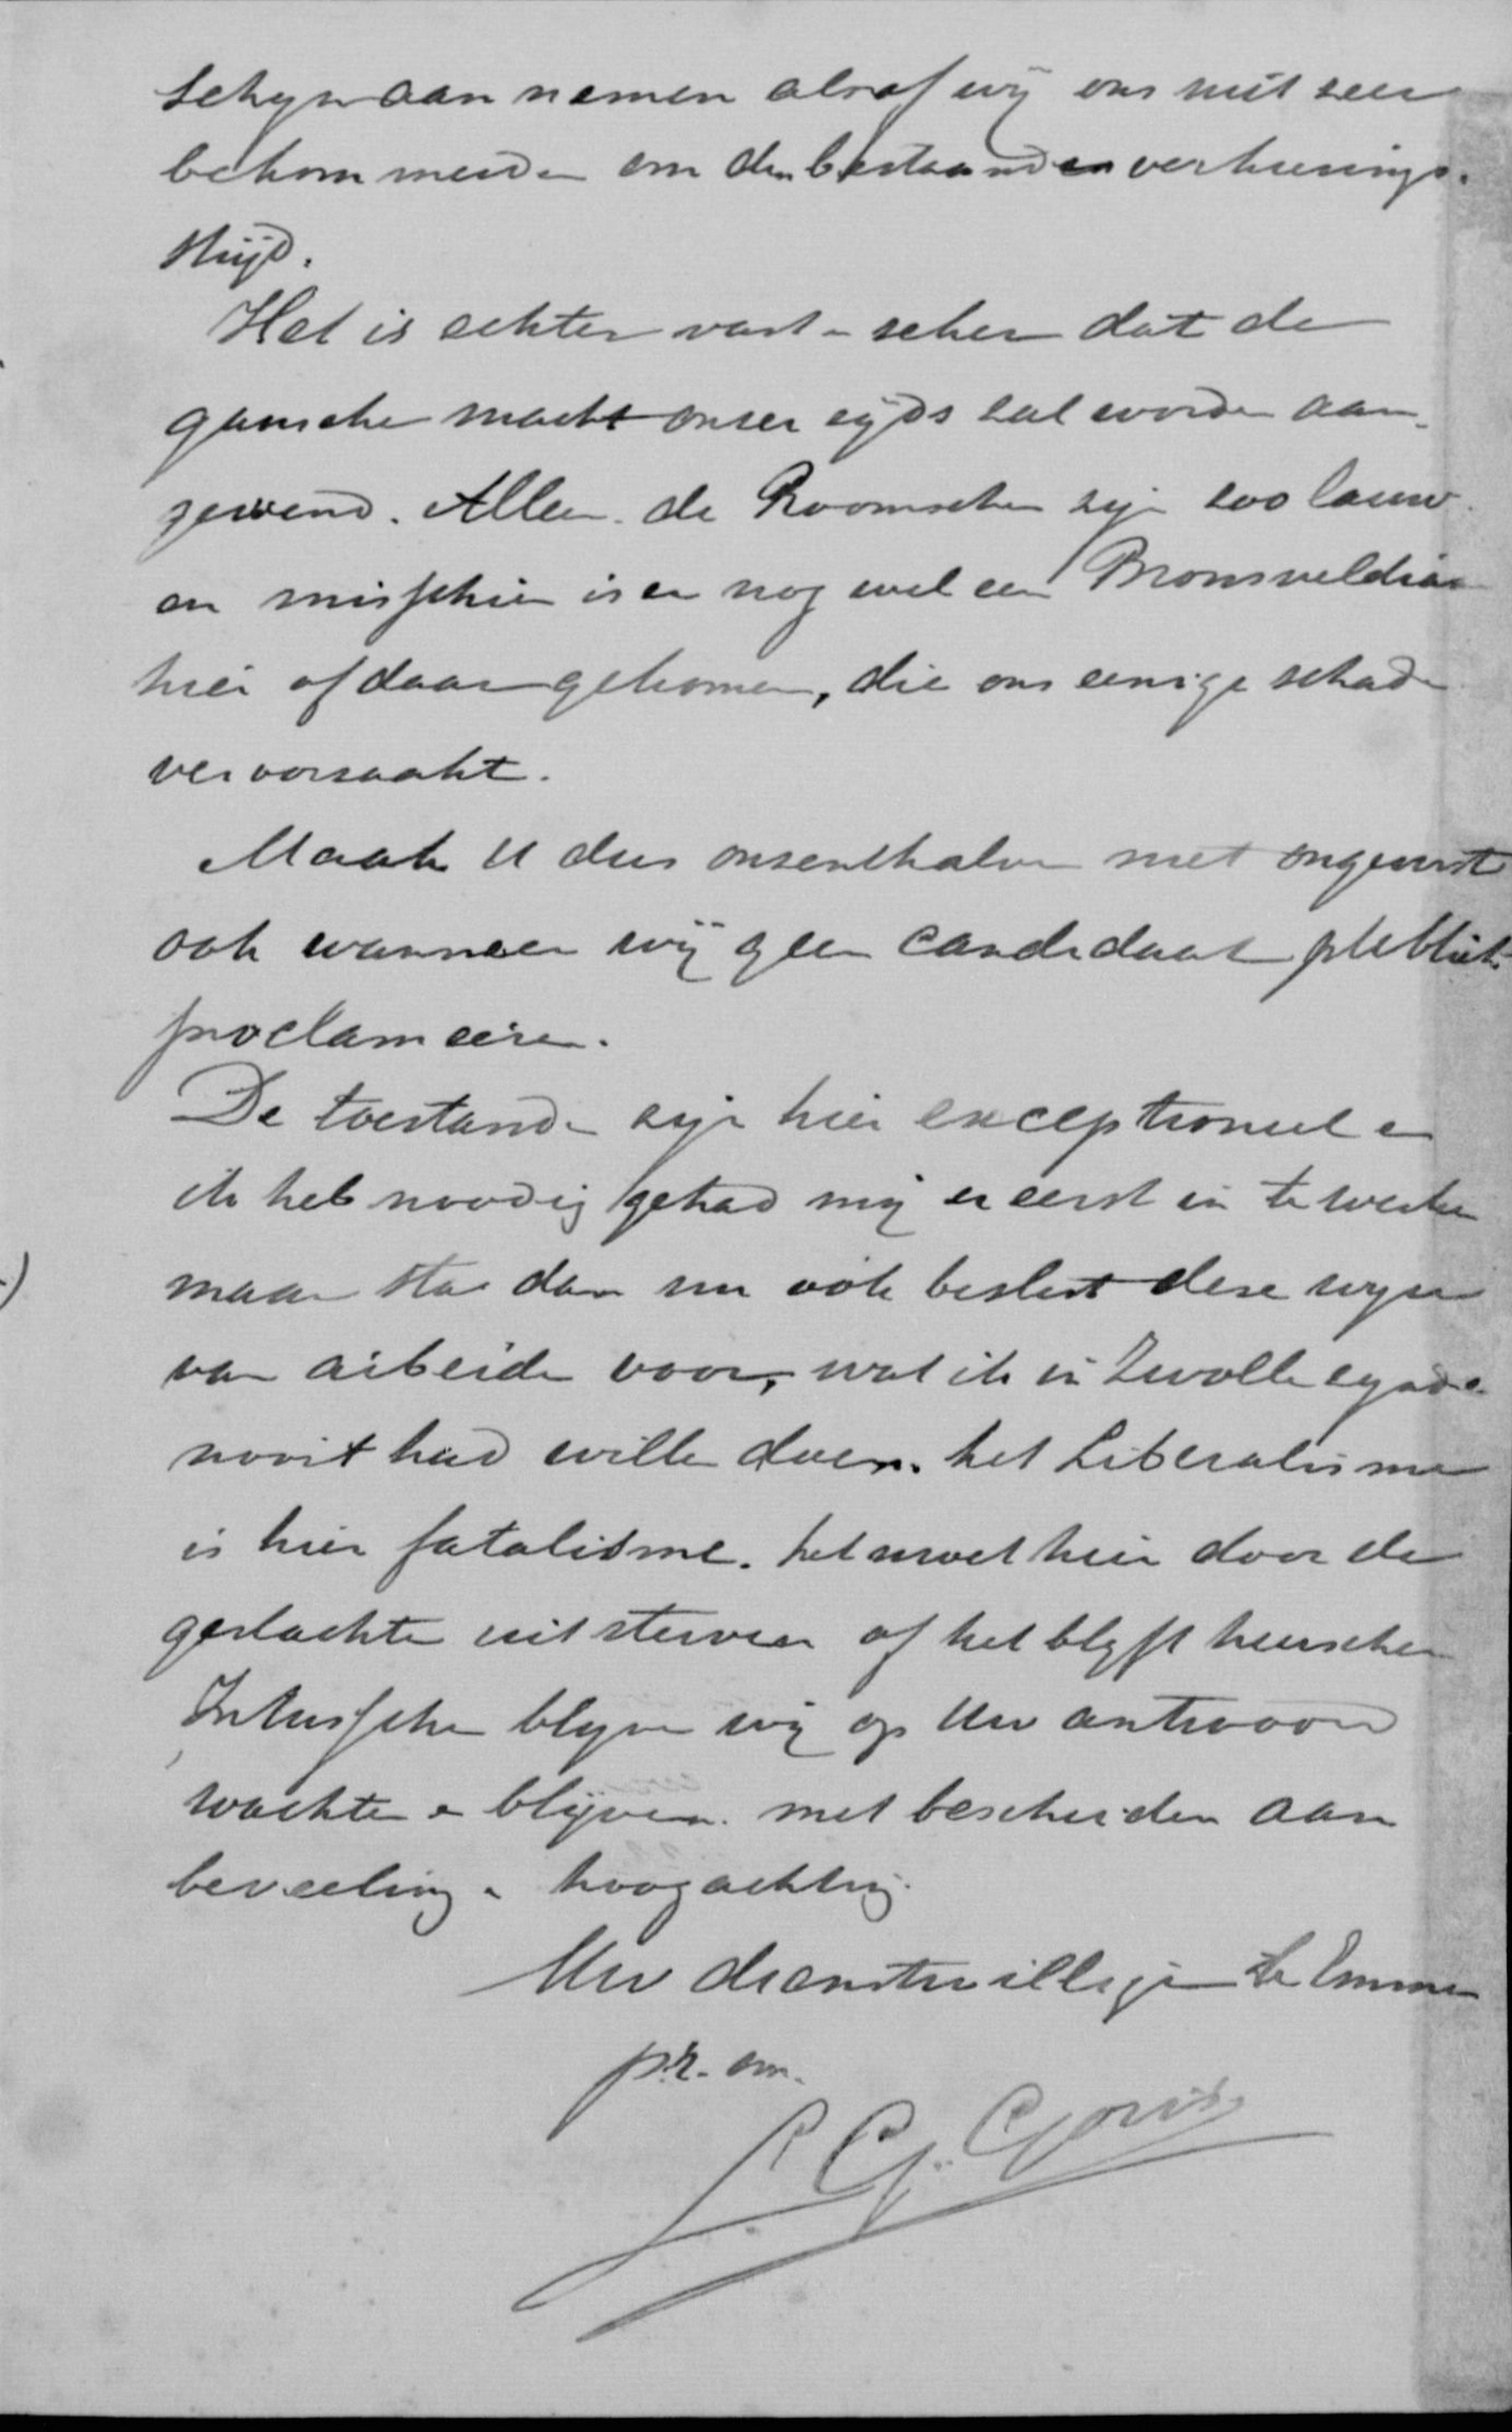 schyn aan nemen alsof wij ons niet zeer
bekommerden om den bestaanden verkiezings-
strijd.
Het is echter vast en zeker dat de
gansche macht onzer zyds zal worden aan-
gewend. Alleen de Roomschen zijn zoo lauw
en misschien is er nog wel een Bronsveldiaan
hier of daar gekomen, die ons eenige schade
veroorzaakt.
Maak U dus onzenthalve niet ongerust
ook wanneer wij geen candidaat publiek
proclameeren.
De toestanden zijn hier exceptioneel en
ik heb noodig gehad mij er eerst in te werken
maar sta dan nu ook beslist deze wyze
van arbeiden voor, wat ik in Zwolle
nooit had willen doen. het Liberalisme
is hier fatalisme. het moet hier door de
geslachten uitsterven of het blyft heerschen
Intusschen blyven wij op Uw antwoord
wachten en blijven met bescheiden aan
beveeling en hoogachting.
Uw dienstwillige te Emmen
pr. om.